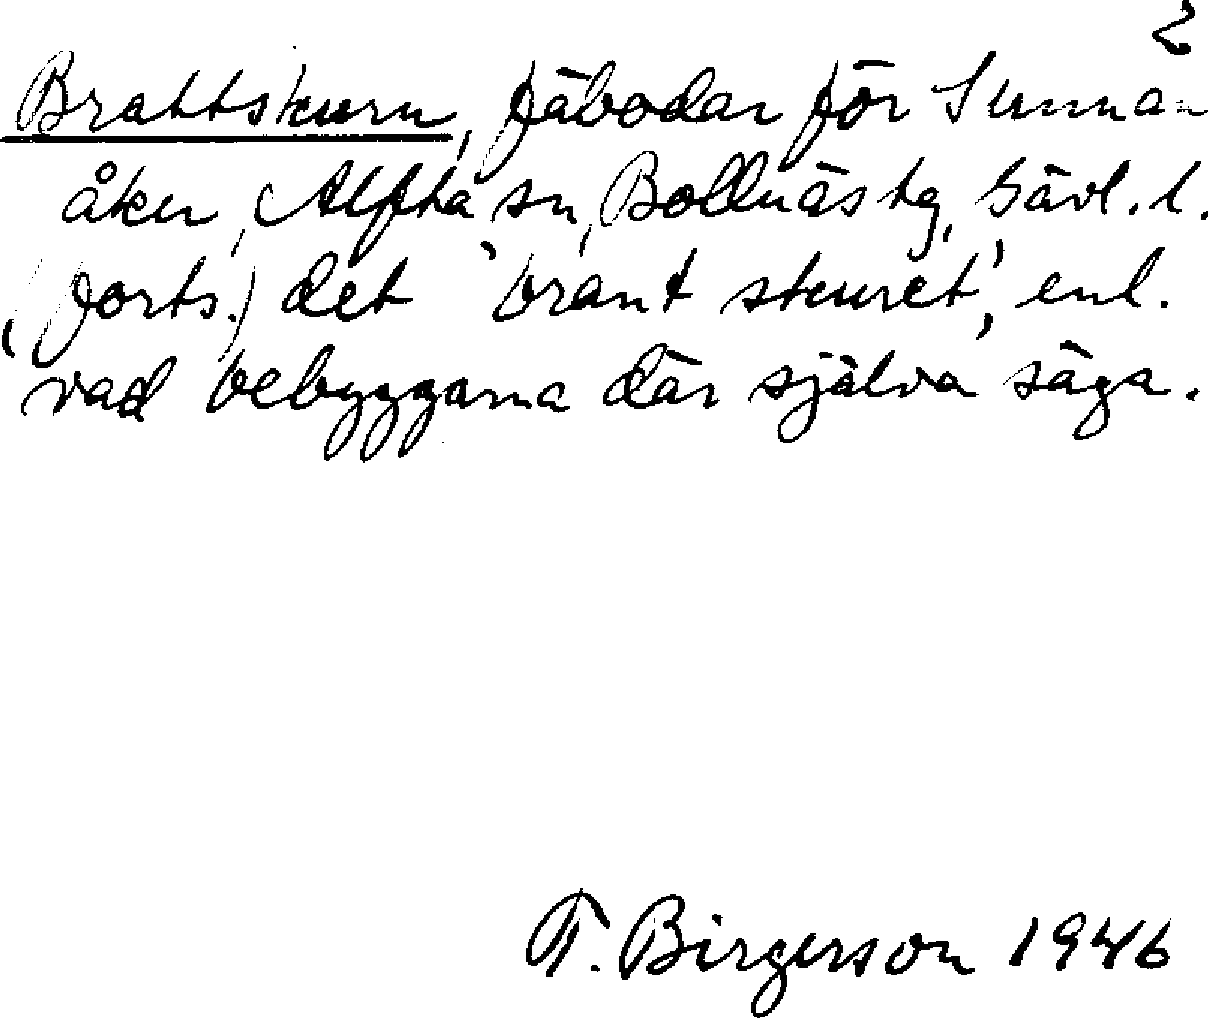 2
Brattskurn, fäbodar för Sunnan-
åker, Alfta sn, Bollnäs tg, Gävl. l.
(forts.) det 'brant skuret', enl.
vad bebyggarna där själva säga.
T. Birgerson 1946